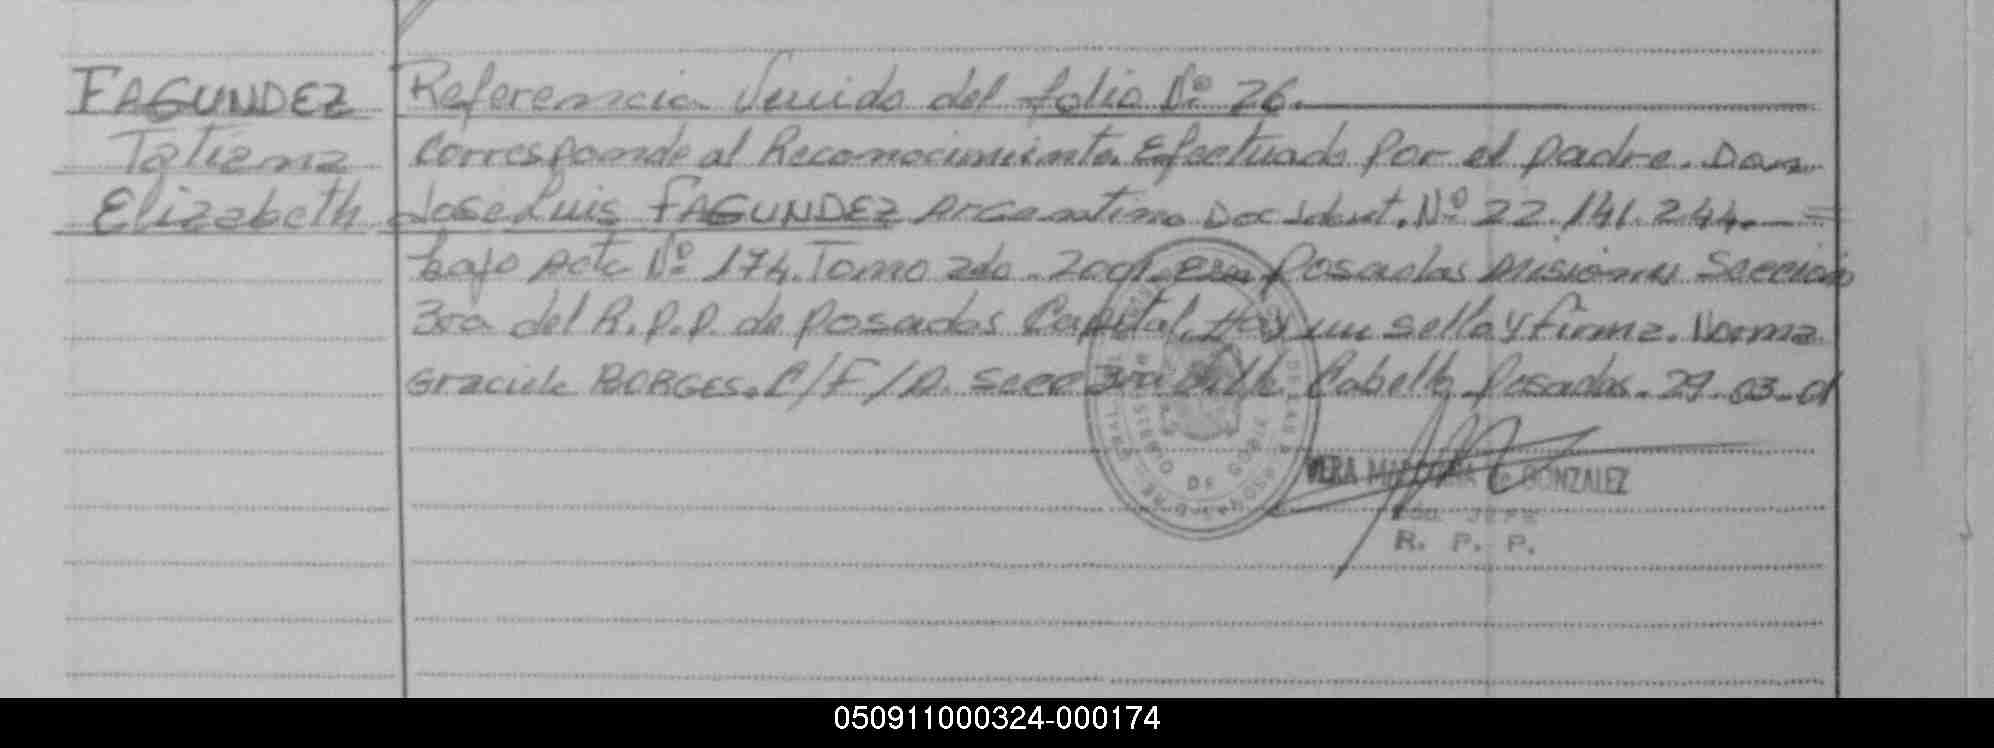 FAGUNDEZ
Tatiana
Elizabeth
Referencia Venida del folio Nº 26.
Corresponde al Reconocimiento Efectuado Por el padre. Don
Jose Luis FAGUNDEZ Argentino Doc Ident. Nº 22.141.244.
bajo Acta Nº 174. Tomo 2do. 2001. En Posadas Misiones Sección
3ra del R.P.P. de Posadas Capital. Hay un sello y firma. Norma
Graciela BORGES. C/F/A. Secc 3ra Villa Cabello Posadas. 29-03-01
VERA DE GONZALEZ
JEFE
R. P. P.
050911000324-000174